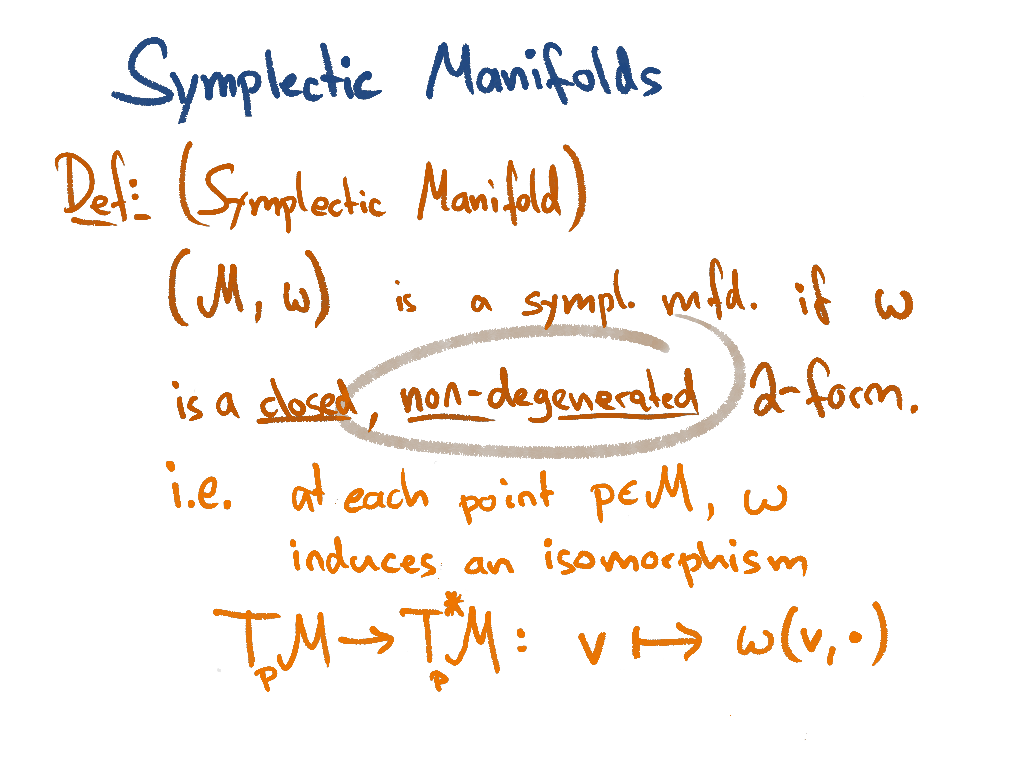 Symplectic Manifolds
Def: (Symplectic Manifold)
(M, ω) is a sympl. mfd. if ω
is a closed, non-degenerated 2-form.
i.e. at each point p∈M, ω
induces an isomorphism
TₚM → Tₚ*M : v ↦ ω(v, •)